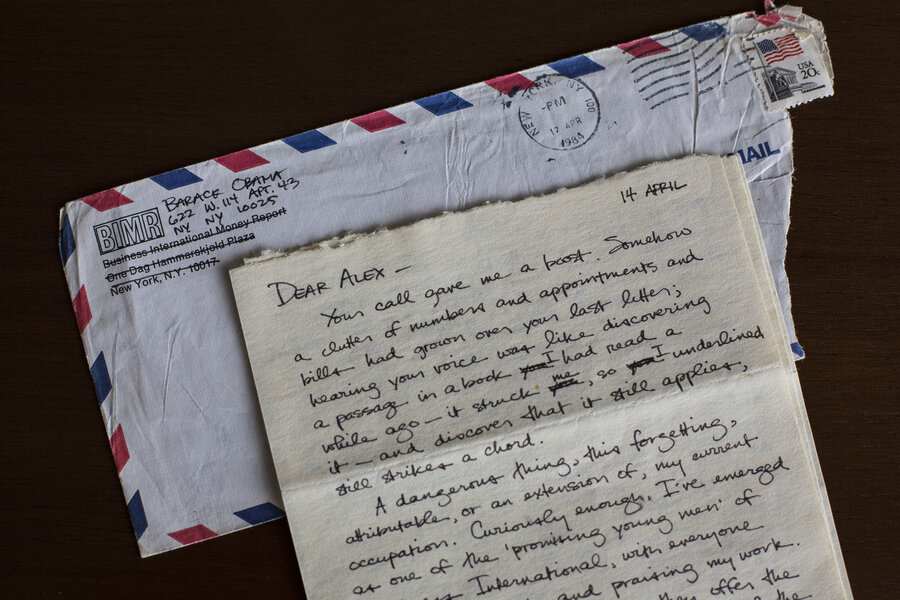 USA
20c
NEW YORK, NY 100
-PM
17 APR
1984
MAIL
BARACK OBAMA
622 W. 114 APT. 43
NY NY 10025
BIMR
Business International Money Report
One Dag Hammarskjold Plaza
New York, N.Y. 10017
14 APRIL
DEAR ALEX —
Your call gave me a boost. Somehow
a clutter of numbers and appointments and
bills had grown over your last letter;
hearing your voice was like discovering
a passage in a book you I had read a
while ago — it struck me, so you I underlined
it — and discover that it still applies,
still strikes a chord.
A dangerous thing, this forgetting,
attributable, or an extension of, my current
occupation. Curiously enough, I've emerged
as one of the 'promising young men' of
International, with everyone
and praising my work.
they offer the
the